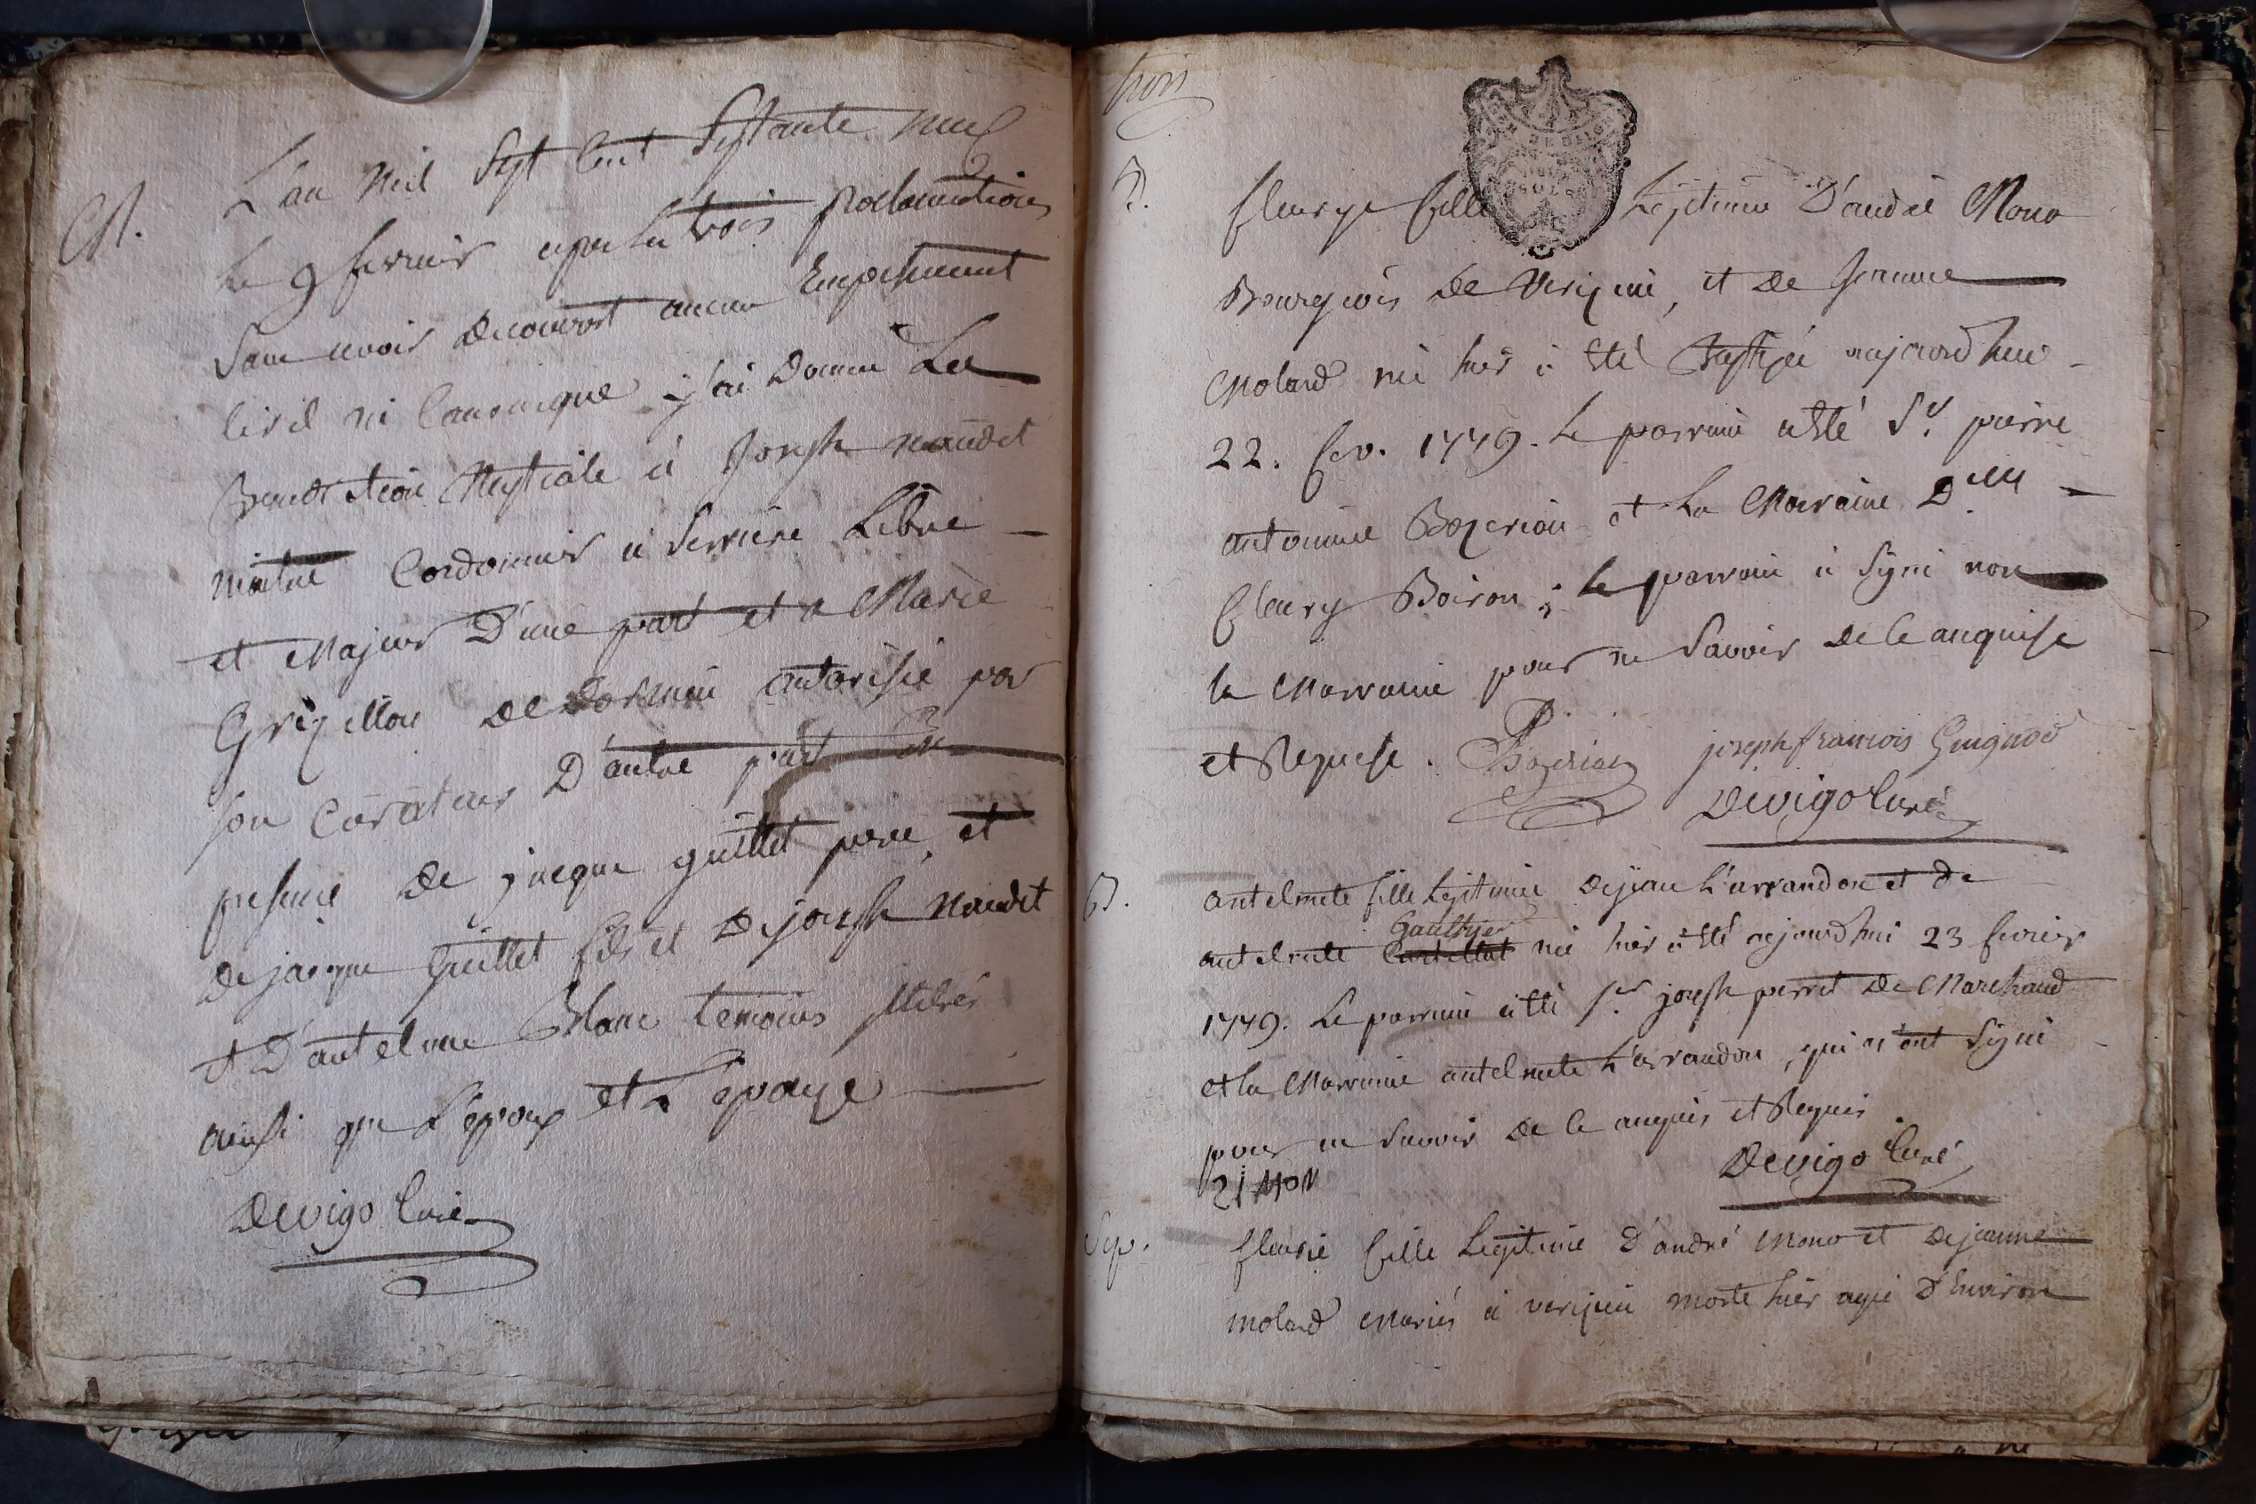 M.
L'an mil sept cent septante neuf
le 9 fevrier apres les trois proclamations
sans avoir decouvert aucun Empechement
Civil ni Canonique j'ai Donné La
Benediction Nuptiale à Joseph naudet
maitre Cordonnier à Serriere Libre
et Majeur D'une part et a Marie
Grizillon de autorisée par
son Curateur D'autre part En
presence De jacque guillet pere, et
De jacque Guillet fils et De joseph Naudet
et D'antelme Blanc temoins
ainsi que L'epoux et L'epouze
Devigo Curé
trois
B.
fleurye fille Legitime D'andré Mono
Bourgeois de Verizieu, et de Jeanne
Molard née hier à Eté Baptisée aujourd'huy
22. fev. 1779. Le parrain a Eté Sr. pierre
antoinne Bozerian et La Marraine Dlle
fleury Boiron ; le parrain à signé non
la Marraine pour ne Savoir De ce anquise
et Requise. Bozerian joseph francois Guignod
Devigo Curé
B.
antelmete fille Legitime De jean L'arrandon et de
Gaulthier
antelmete née hier à Eté aujourdhui 23 fevrier
1779. Le parrain à Eté Sr. joseph perret De Marchand
et la Marraine antelmete L'arrandon, qui n'ont Signé
pour ne Savoir De ce anquis et Requis.
Devigo Curé
Sep.
fleurie fille Legitime D'andré Mono et De jeanne
molard Mariés à verizieu morte hier agée D'Environ